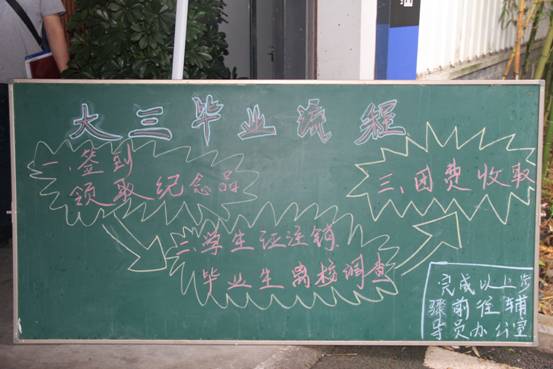 大三毕业流程
一、签到
领取纪念品
二、学生证注销、
毕业生离校调查
三、团费收取
完成以上步
骤前往辅
导员办公室